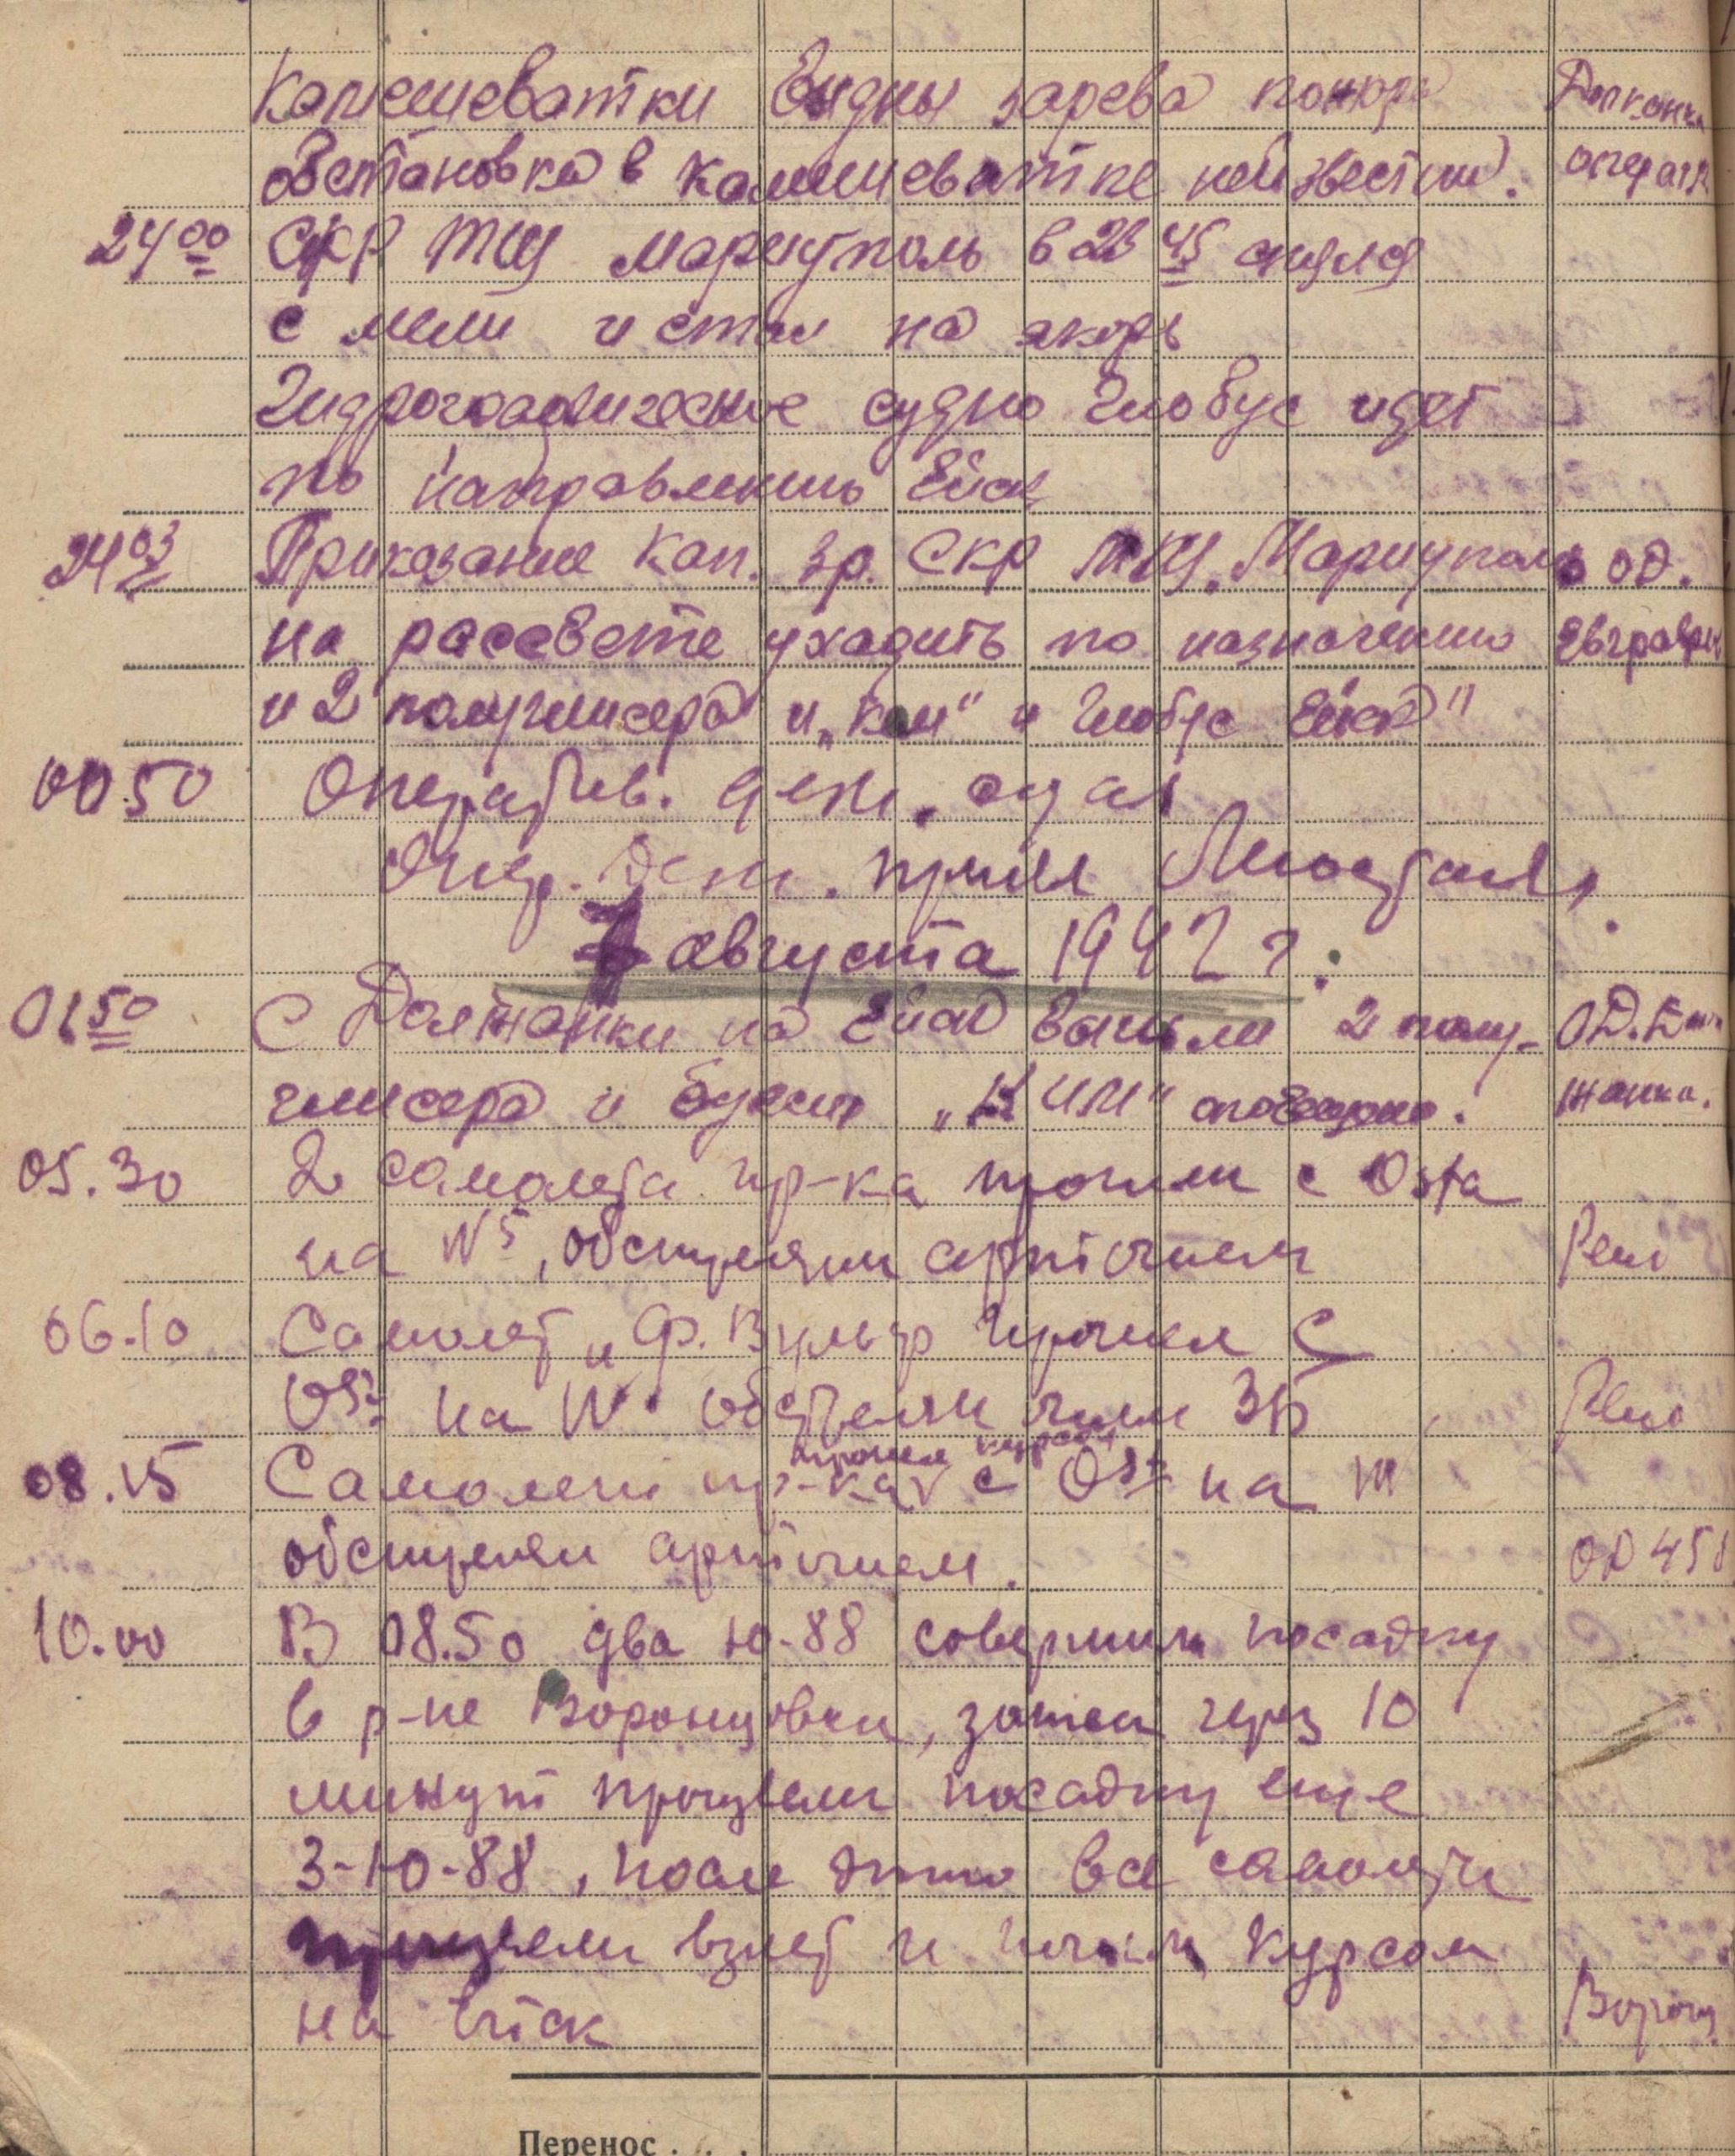 Камышеватки видны зарева пожара Должанка
обстановка в Камышеватке неизвестна. операт.
24 00 СКР ТЩ Мариуполь в 23 45 снялся
с мели и стал на якорь
Гидрографическое судно Глобус идет
по направлению Ейск
24 03 Приказание Кап. 3р. СКР ТЩ „Мариуполь ОД.
на рассвете уходить по назначению
и 2 полуглисера и „Ким" и Глобус Ейск"
00.50 Оператив. деж. сдал
Опер. Деж. принял
7 августа 1942 г.
01 50 С Должанки на Ейск вышли 2 полу- ОД. Дол-
глисера и буксир „КИМ" жанка.
05.30 2 самолета пр-ка прошли с Osta
на W, обстреляны артогнем
06.10 Самолет „Ф. Вульф прошел с
Ost на W. обстрелян огнем ЗБ
прошел курсом
08.15 Самолет пр-ка V с Ost на W
обстрелян артогнем. ОД 458
10.00 В 08.50 два Ю-88 совершили посадку
в р-не Воронцовки, затем через 10
минут произвели посадку еще
3-Ю-88, после этого все самолеты
произвели взлет и пошли курсом
на Ейск Воронц.
Перенос . . .